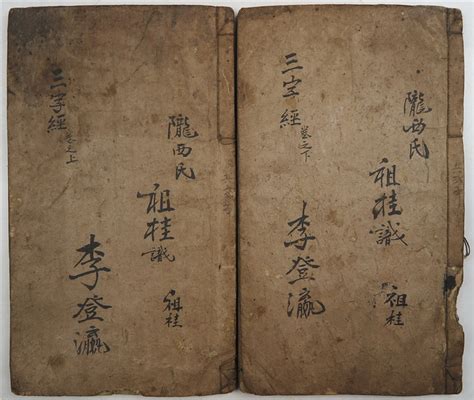 隴西氏
祖桂識
祖桂
三字經
卷之上
李登瀛
隴西氏
祖桂識
祖桂
三字經
卷之下
李登瀛